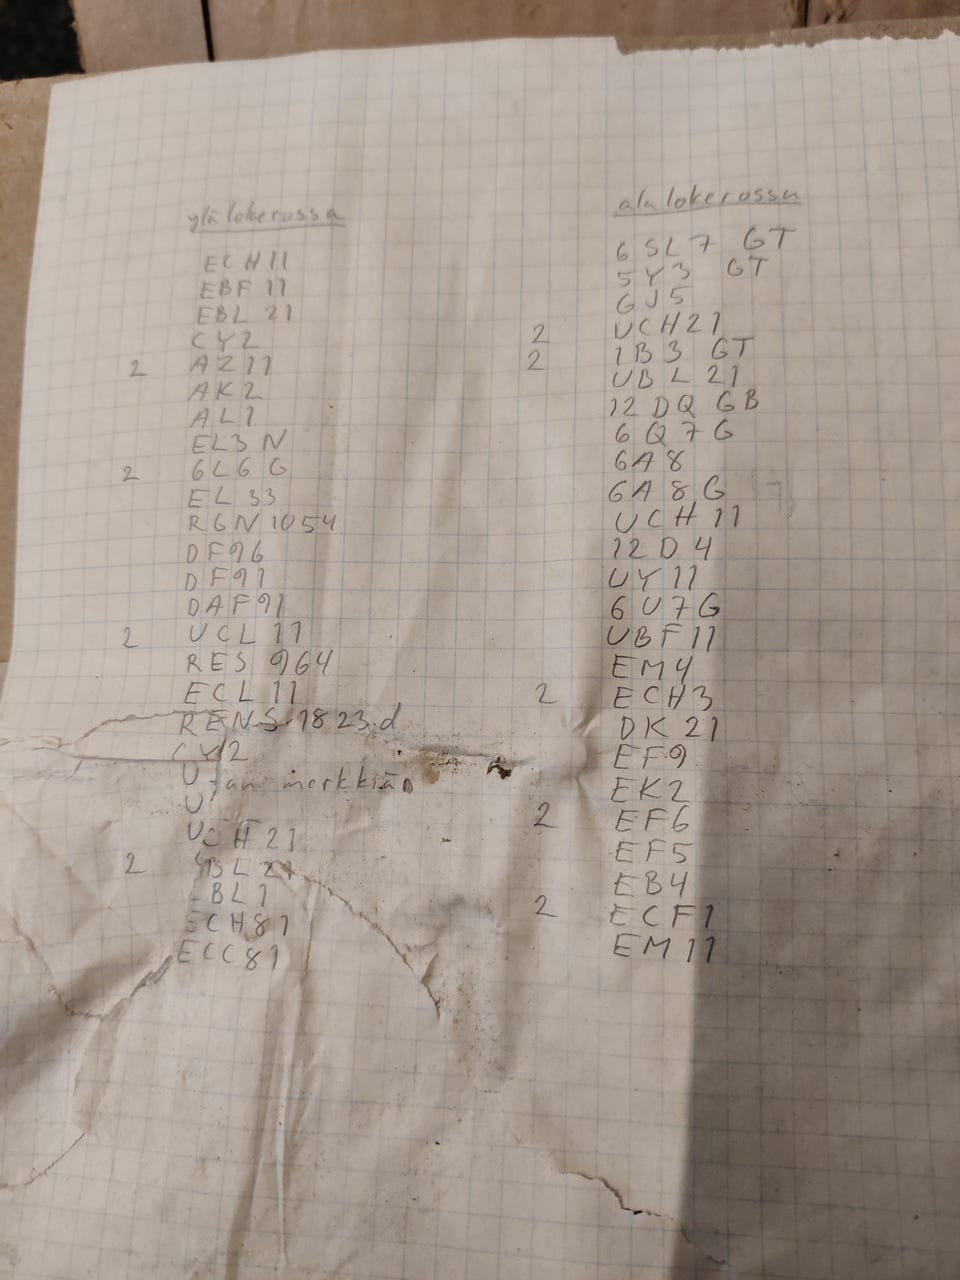 ylälokerossa
ECH11
EBF 11
EBL 21
CY2
2 AZ11
AK2
AL1
EL3 N
2 6L6 G
EL 33
RGN 1054
DF96
DF91
DAF91
2 UCL 11
RES 964
ECL 11
RENS 1823 d
CY2
U
merkkiä
U
UCH 21
2 BL 21
BL1
ECH81
ECC81
alalokerossa
6 SL 7 GT
5Y3 GT
6J5
2 UCH21
2 1B3 GT
UBL 21
12 DQ GB
6 Q 7 G
6A8
6A8G
UCH 11
12 D 4
UY 11
6 U 7 G
UBF11
EM4
2 ECH3
DK 21
EF9
EK2
2 EF6
EF5
EB4
2 ECF1
EM 11